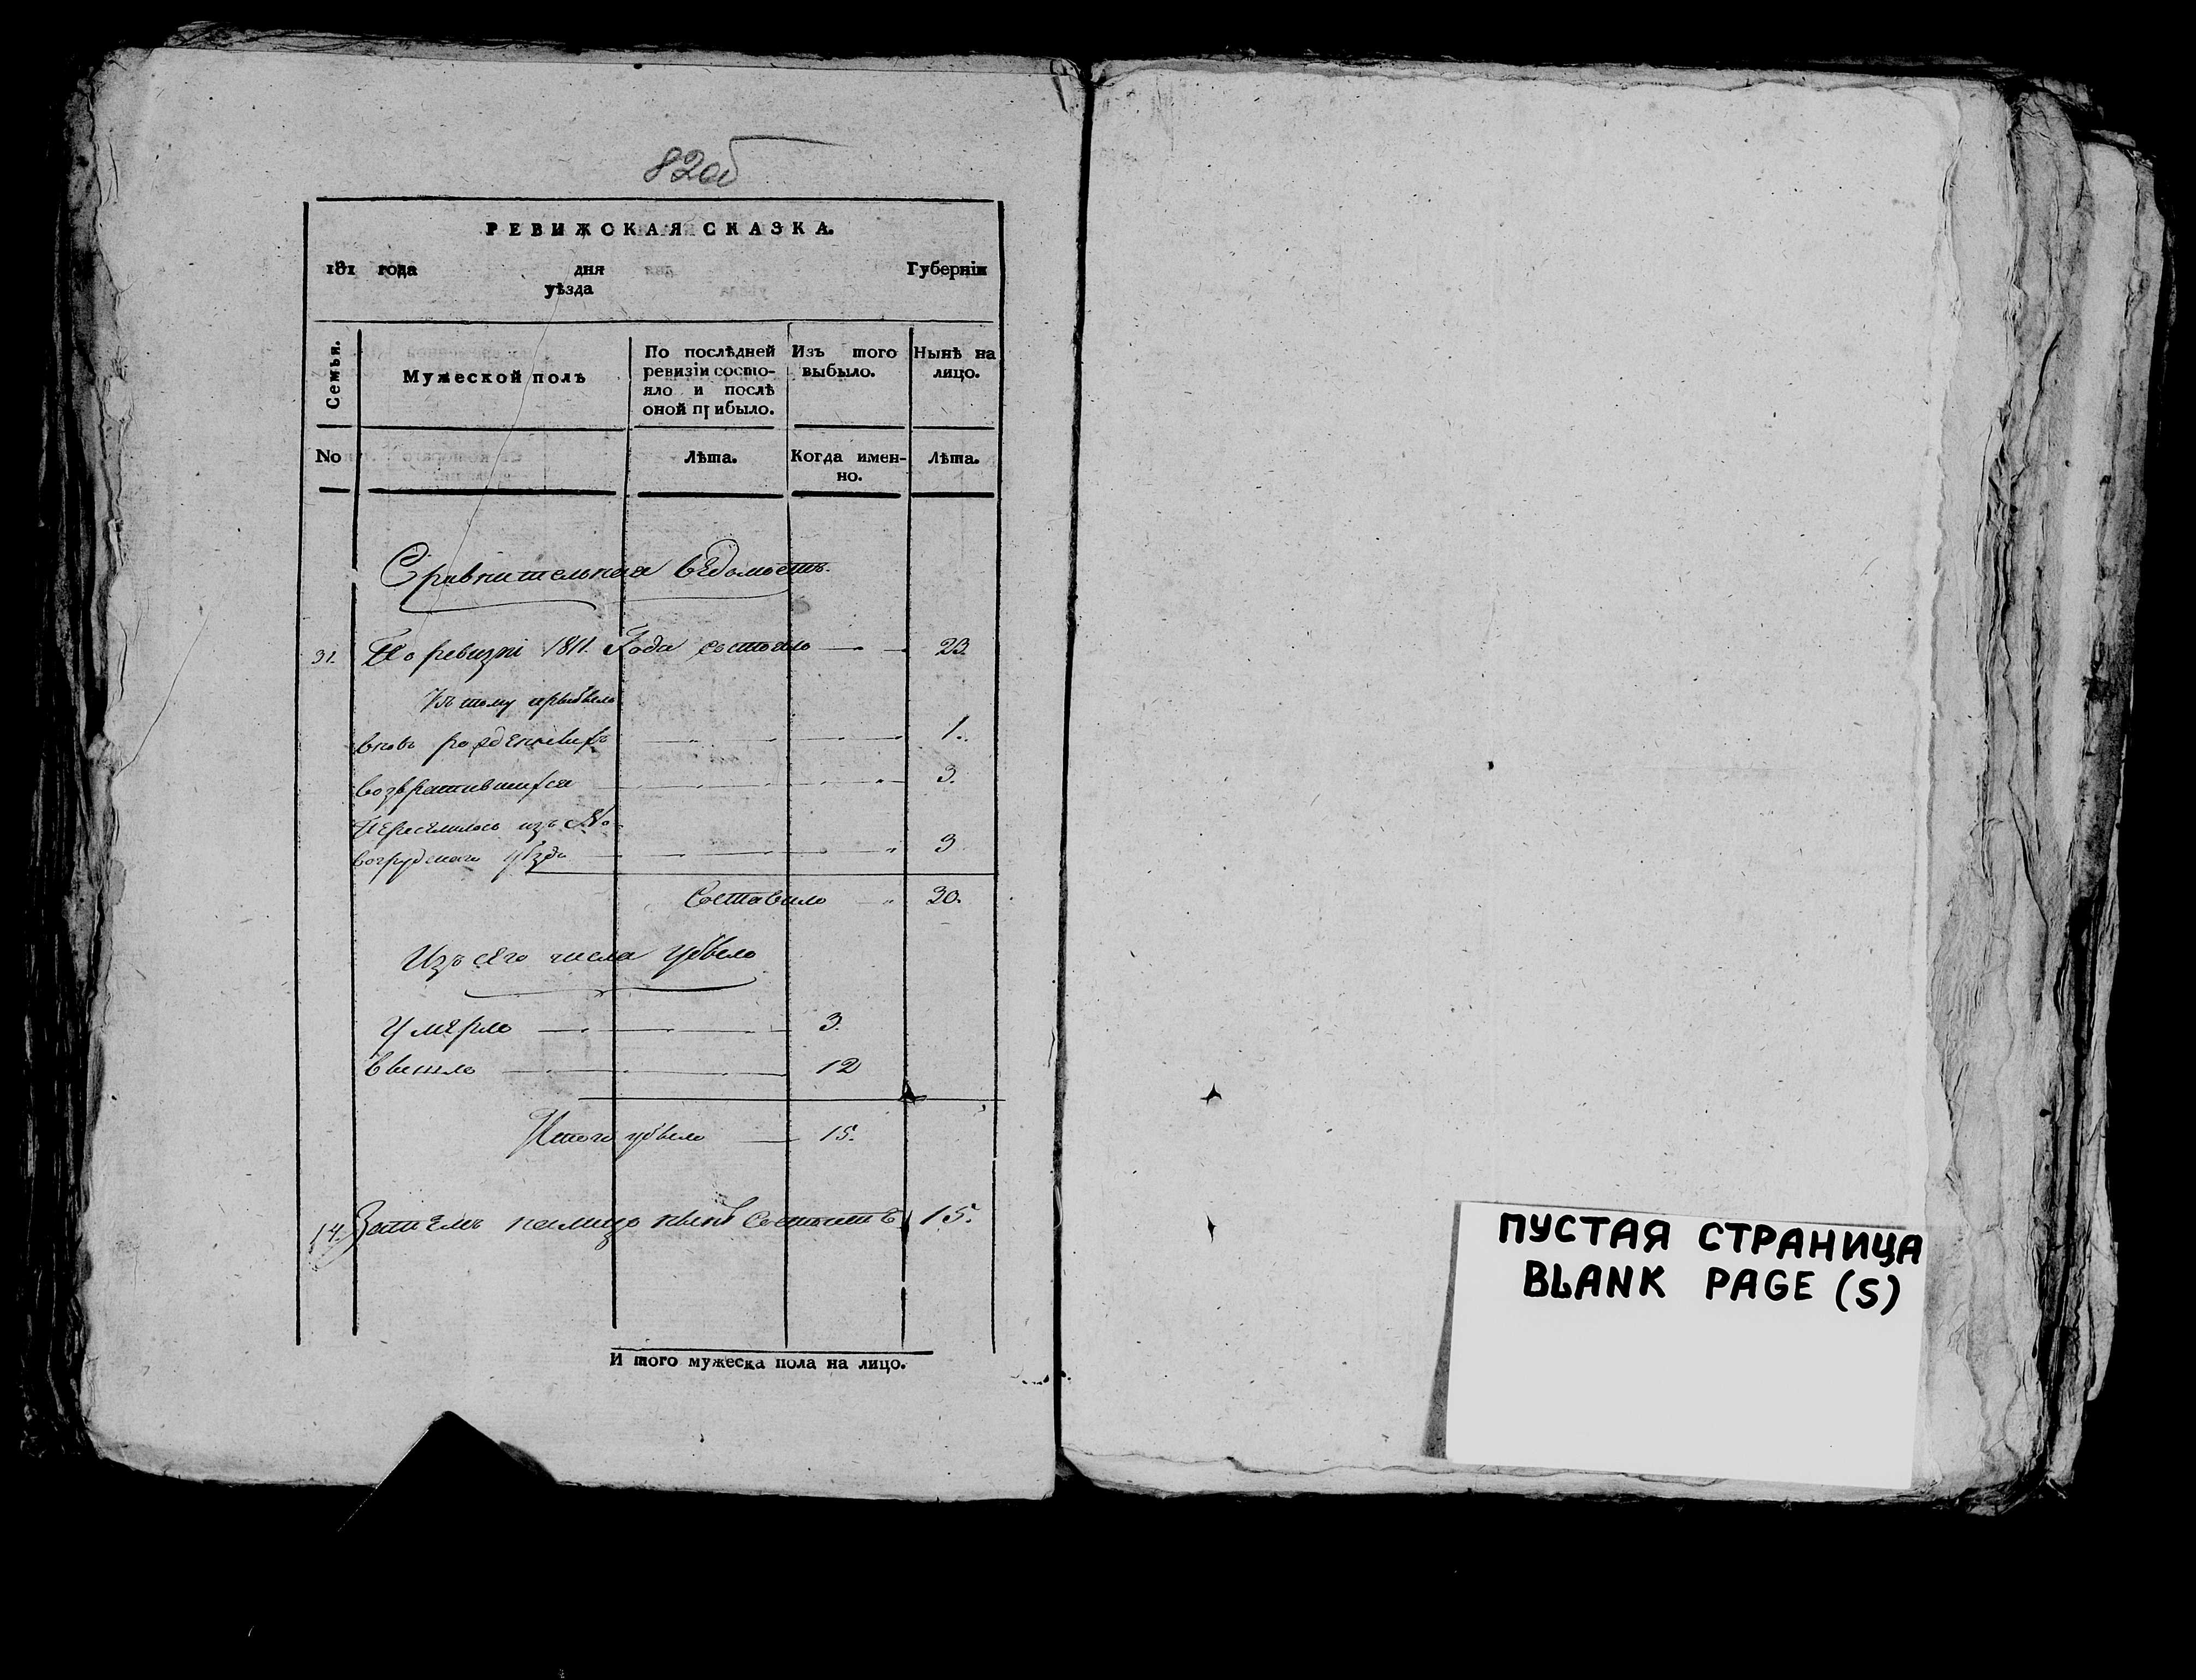 82об
РЕВИЖСКАЯ СКАЗКА.
181 года дня Губерніи
уѣзда
Семьи. Мужеской полъ По послѣдней ревизіи состояло и послѣ оной прибыло. Изъ того выбыло. Нынѣ на лицо.
No Лѣта. Когда именно. Лѣта.
Сравнительная вѣдомость.
31. По ревизіи 1811. Года состояло 23.
Къ тому прибыло
вновь рожденныхъ 1.
возвратившихся 3.
переселилось изъ Но-
вогрудскаго уѣзда 3
Составило 30.
Изъ сего числа убыло
умерло 3.
вышло 12
Итого убыло 15.
14. Затемъ налицо нынѣ состоитъ 15.
И того мужеска пола на лицо.
ПУСТАЯ СТРАНИЦА
BLANK PAGE (S)